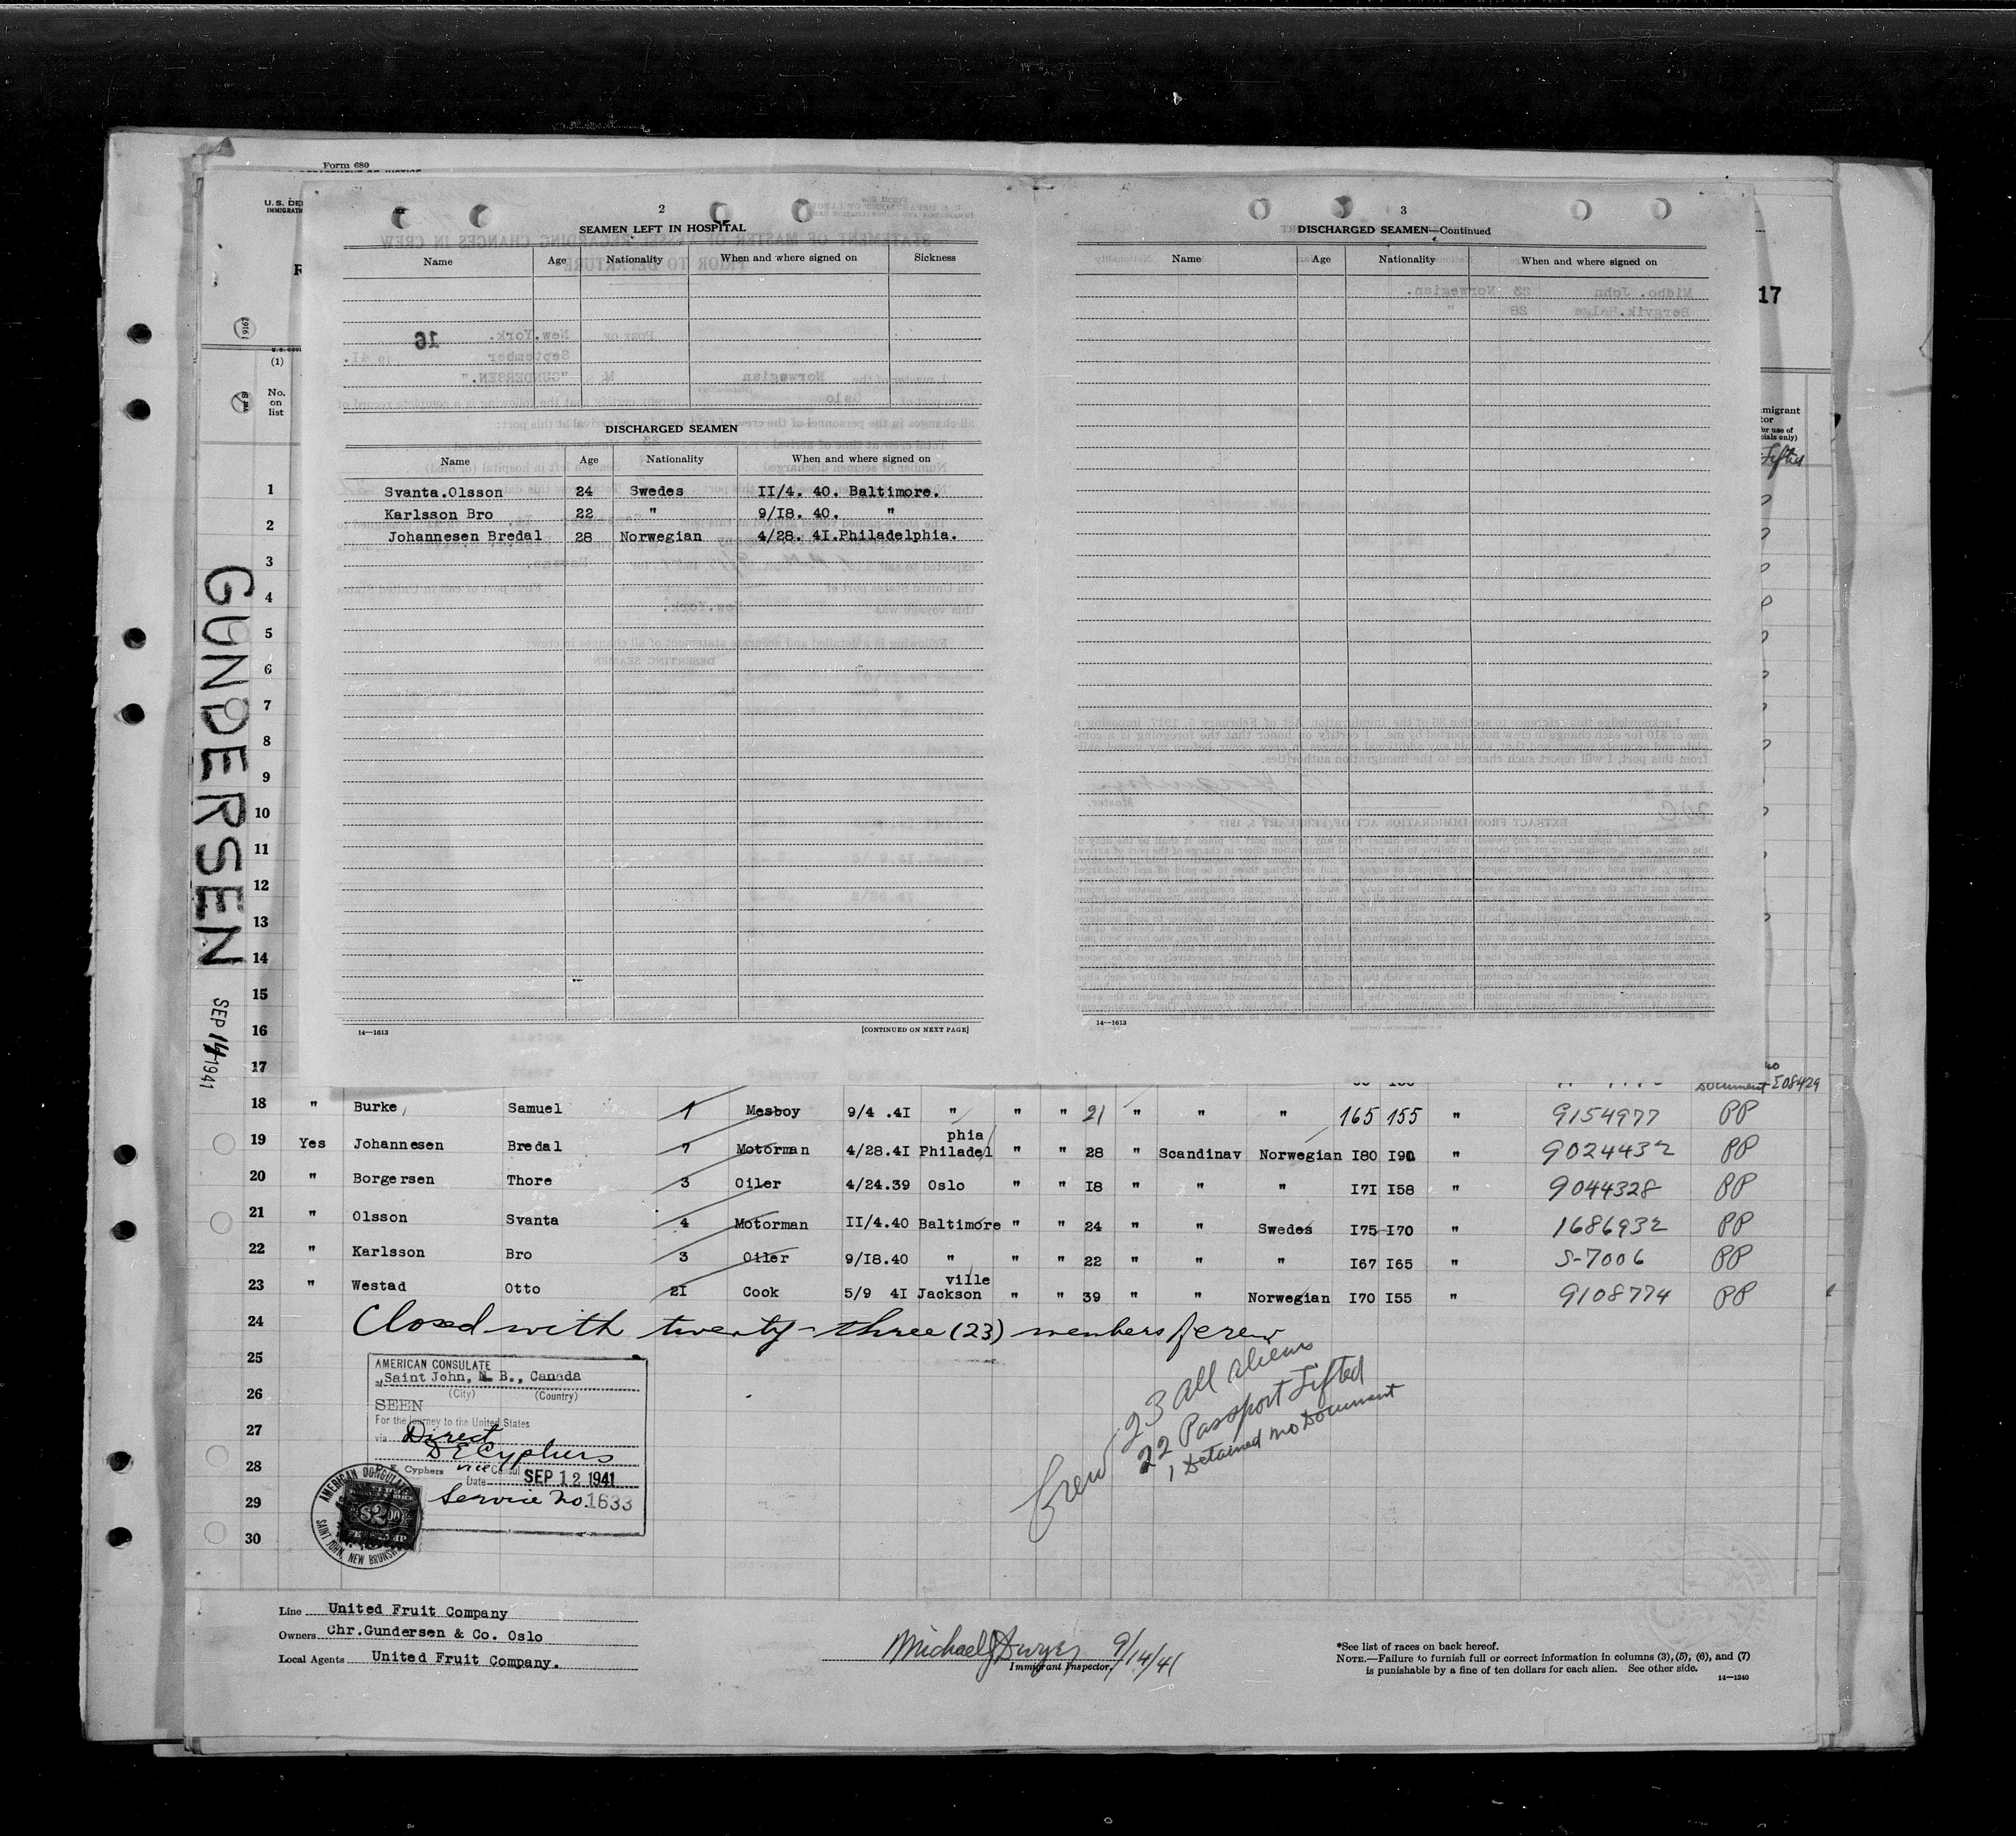 Form 680
U.S. DE
IMMIGRAT
2
SEAMEN LEFT IN HOSPITAL
Name Age Nationality When and where signed on Sickness
DISCHARGED SEAMEN
Name Age Nationality When and where signed on
Svanta.Olsson 24 Swedes II/4. 40. Baltimore.
Karlsson Bro 22 " 9/I8. 40. "
Johannesen Bredal 28 Norwegian 4/28. 4I.Philadelphia.
14—1613 [CONTINUED ON NEXT PAGE]
3
DISCHARGED SEAMEN—Continued
Name Age Nationality When and where signed on
14—1613
17
migrant
tor
or use of
cials only)
Lifted
(1)
No.
on
list
1
2
3
4
5
6
7
8
9
10
11
12
13
14
15
16
17
GUNDERSEN
SEP 14 1941
no
Document E08429
18 " Burke Samuel 1 Mesboy 9/4 .4I " " " 21 " " " 165 155 " 9154977 PP
19 Yes Johannesen Bredal 7 Motorman 4/28.4I Philadel phia " " 28 " Scandinav Norwegian I80 I90 " 9024432 PP
20 " Borgersen Thore 3 Oiler 4/24.39 Oslo " " I8 " " " I7I I58 " 9044328 PP
21 " Olsson Svanta 4 Motorman II/4.40 Baltimore " " 24 " " Swedes I75 I70 " 1686932 PP
22 " Karlsson Bro 3 Oiler 9/I8.40 " " " 22 " " " I67 I65 " S-7006 PP
23 " Westad Otto 2I Cook 5/9 4I Jackson ville " " 39 " " Norwegian I70 I55 " 9108774 PP
24 Closed with twenty-three (23) members of crew
25
26
27
28
29
30
AMERICAN CONSULATE
at Saint John, N. B., Canada
(City) (Country)
SEEN
For the journey to the United States
via Direct
D E Cyphers
D. E. Cyphers vice Consul
Date SEP 12 1941
Service No. 1633
AMERICAN CONSULATE
SAINT JOHN, NEW BRUNSW
$2.00
Crew 23 all aliens
22 Passport Lifted
1 Detained no Document
Line United Fruit Company
Owners Chr.Gundersen & Co. Oslo
Local Agents United Fruit Company.
Michael J Dwyer 9/14/41
Immigrant Inspector,
*See list of races on back hereof.
NOTE.—Failure to furnish full or correct information in columns (3), (5), (6), and (7)
is punishable by a fine of ten dollars for each alien. See other side.
14—1240